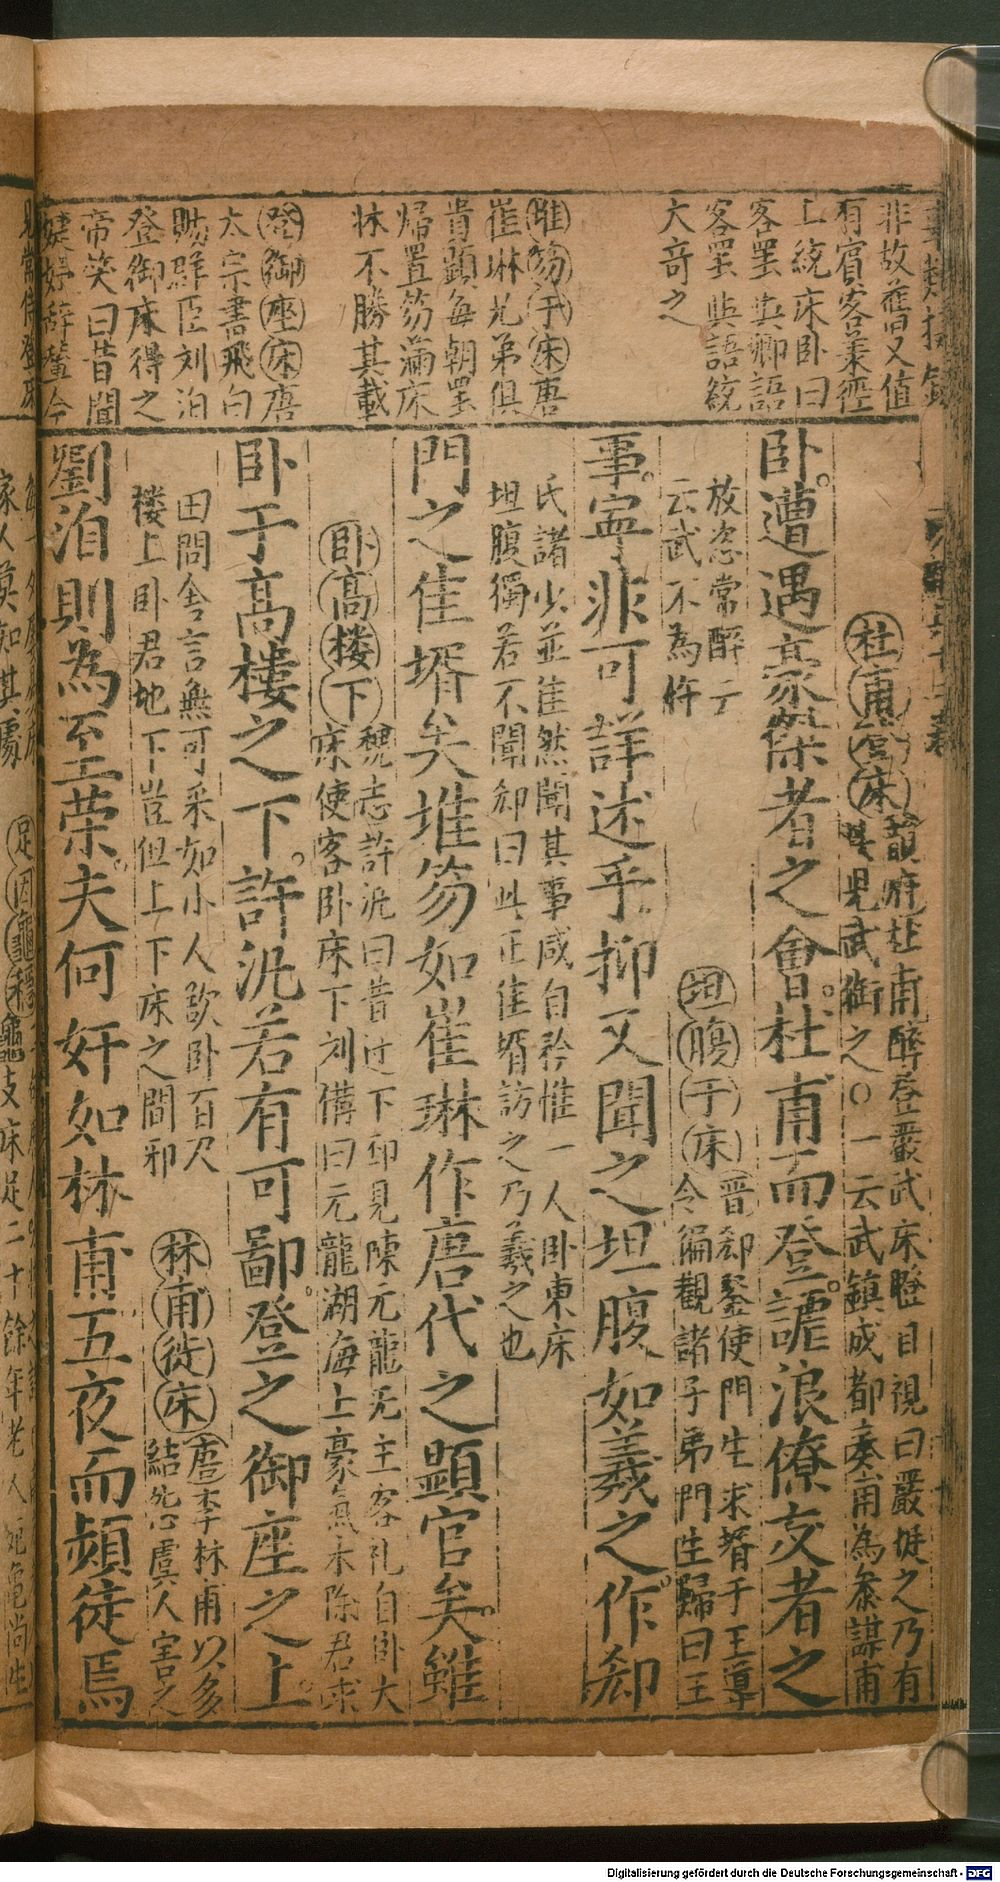 非故舊又值
有賓客業徑
上統床卧曰
客罢與卿語
客罢與語統
大奇之
堆笏于床唐
崔琳兄弟俱
貴顯每朝罢
帰置笏滿床
床不勝其載
登御座床唐
太宗書飛白
賜群臣刘洎
登御床得之
帝笑曰昔聞
婕妤辞輦今
杜甫登床
杜甫醉登嚴武床瞪目視曰嚴挺之乃有
其兒武銜之〇一云武鎮成都奏甫為叅謀甫
卧遭遇豪傑者之會杜甫而登謔浪僚友者之
放恣常醉亍
云武不為忤
坦腹于床
晋郄鉴使門生求壻于王導
令徧觀諸子弟門生歸曰王
事寜非可詳述乎抑又聞之坦腹如羲之作郄
氏諸少並佳然聞其事咸自矜惟一人卧東床
坦腹獨若不聞郄曰此正佳壻訪之乃羲之也
門之佳壻矣堆笏如崔琳作唐代之顯官矣雖
卧高楼下
魏志許汜曰昔过下邳見陳元龍无主客礼自卧大
床使客卧床下刘備曰元龍湖海上豪氣未除君求
卧于高樓之下許汜若有可鄙登之御座之上
田問舍言無可采如小人欲卧百尺
楼上卧君地下豈但上下床之間邪
林甫徙床
唐李林甫以多
結怨虞人害之
劉洎則為至荣夫何奸如林甫五夜而頻徒焉
見常侍登床
家人莫知其處
足因龜穩
龜支床足二十餘年老人死龜尚生
Digitalisierung gefördert durch die Deutsche Forschungsgemeinschaft - DFG